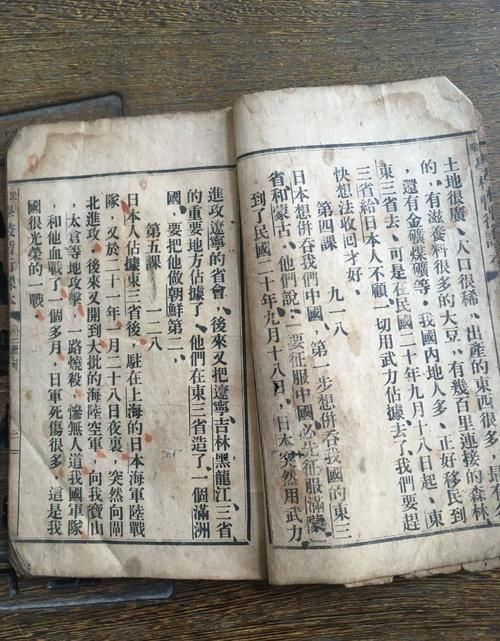 土地很廣、人口很稀、出產的東西很多、
的、有滋養料很多的大豆、有幾百里連接的森林
、還有金礦煤礦等。我國內地人多、正好移民到
東三省去、可是在民國二十年九月十八日起、東
三省給日本人不顧一切用武力佔據去了、我們要趕
快想法收回才好。
第四課　九一八
日本想併吞我們中國、第一步想併吞我國的東三
省和蒙古、他們說：「要征服中國、必先征服滿蒙」
到了民國二十年九月十八日、日本突然用武力
進攻遼寧的省會、後來又把遼寧吉林黑龍江三省
的重要地方佔據了、他們在東三省造了一個滿洲
國、要把他做朝鮮第二。
第五課　一二八
日本人佔據東三省後、駐在上海的日本海軍陸戰
隊、又於二十一年一月二十八日夜裏、突然向閘
北進攻、後來又開到大批的海陸空軍、向我寶山
、太倉等地攻擊、一路燒殺、慘無人道、我國軍隊
、和他血戰了一個多月、日軍死傷很多、這是我
國很光榮的一戰。